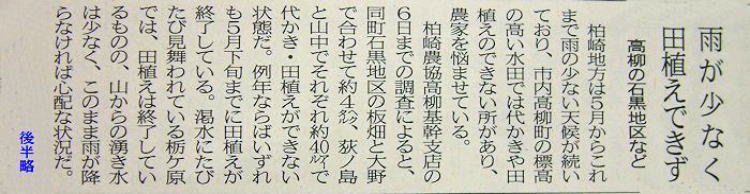 雨が少なく
田植えできず
高柳の石黒地区など
柏崎地方は５月からこれ
まで雨の少ない天候が続い
ており、市内高柳町の標高
の高い水田では代かきや田
植えのできない所があり、
農家を悩ませている。
柏崎農協高柳基幹支店の
６日までの調査によると、
同町石黒地区の板畑と大野
で合わせて約４㌶、荻ノ島
と山中でそれぞれ約40㌃で
代かき・田植えができない
状態だ。例年ならばいずれ
も５月下旬までに田植えが
終了している。渇水にたび
たび見舞われている栃ケ原
では、田植えは終了してい
るものの、山からの湧き水
は少なく、このまま雨が降
らなければ心配な状況だ。
後半略